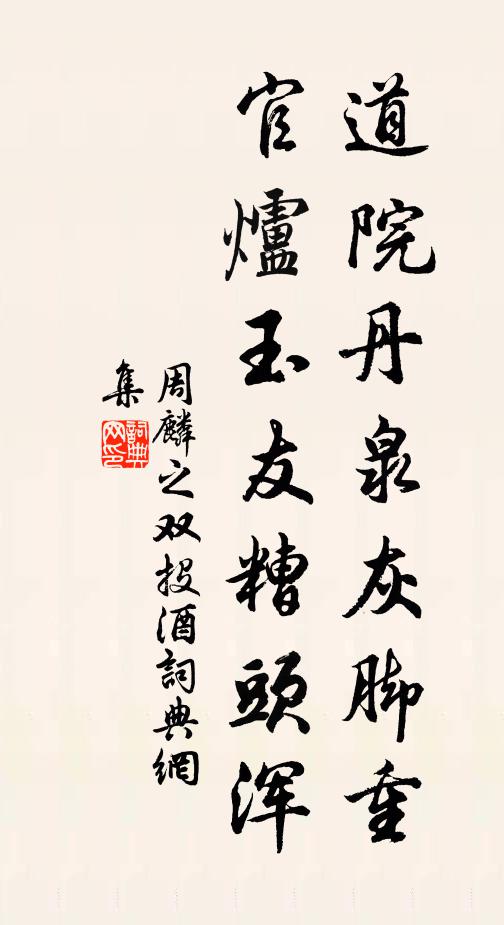 道院丹泉灰脚重
官爐玉友糟頭浑
周麟之双投酒詞典網
集
詞典
网印